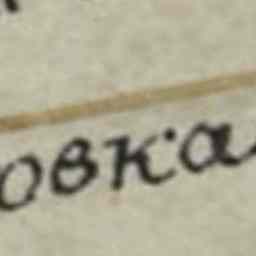 овка